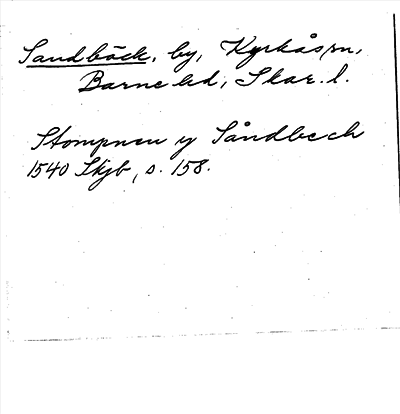 Sandbäck, by, Kyrkås sn,
Barne hd, Skar. l.
Stompnen y Sandbeck
1540 Skjb, s. 158.